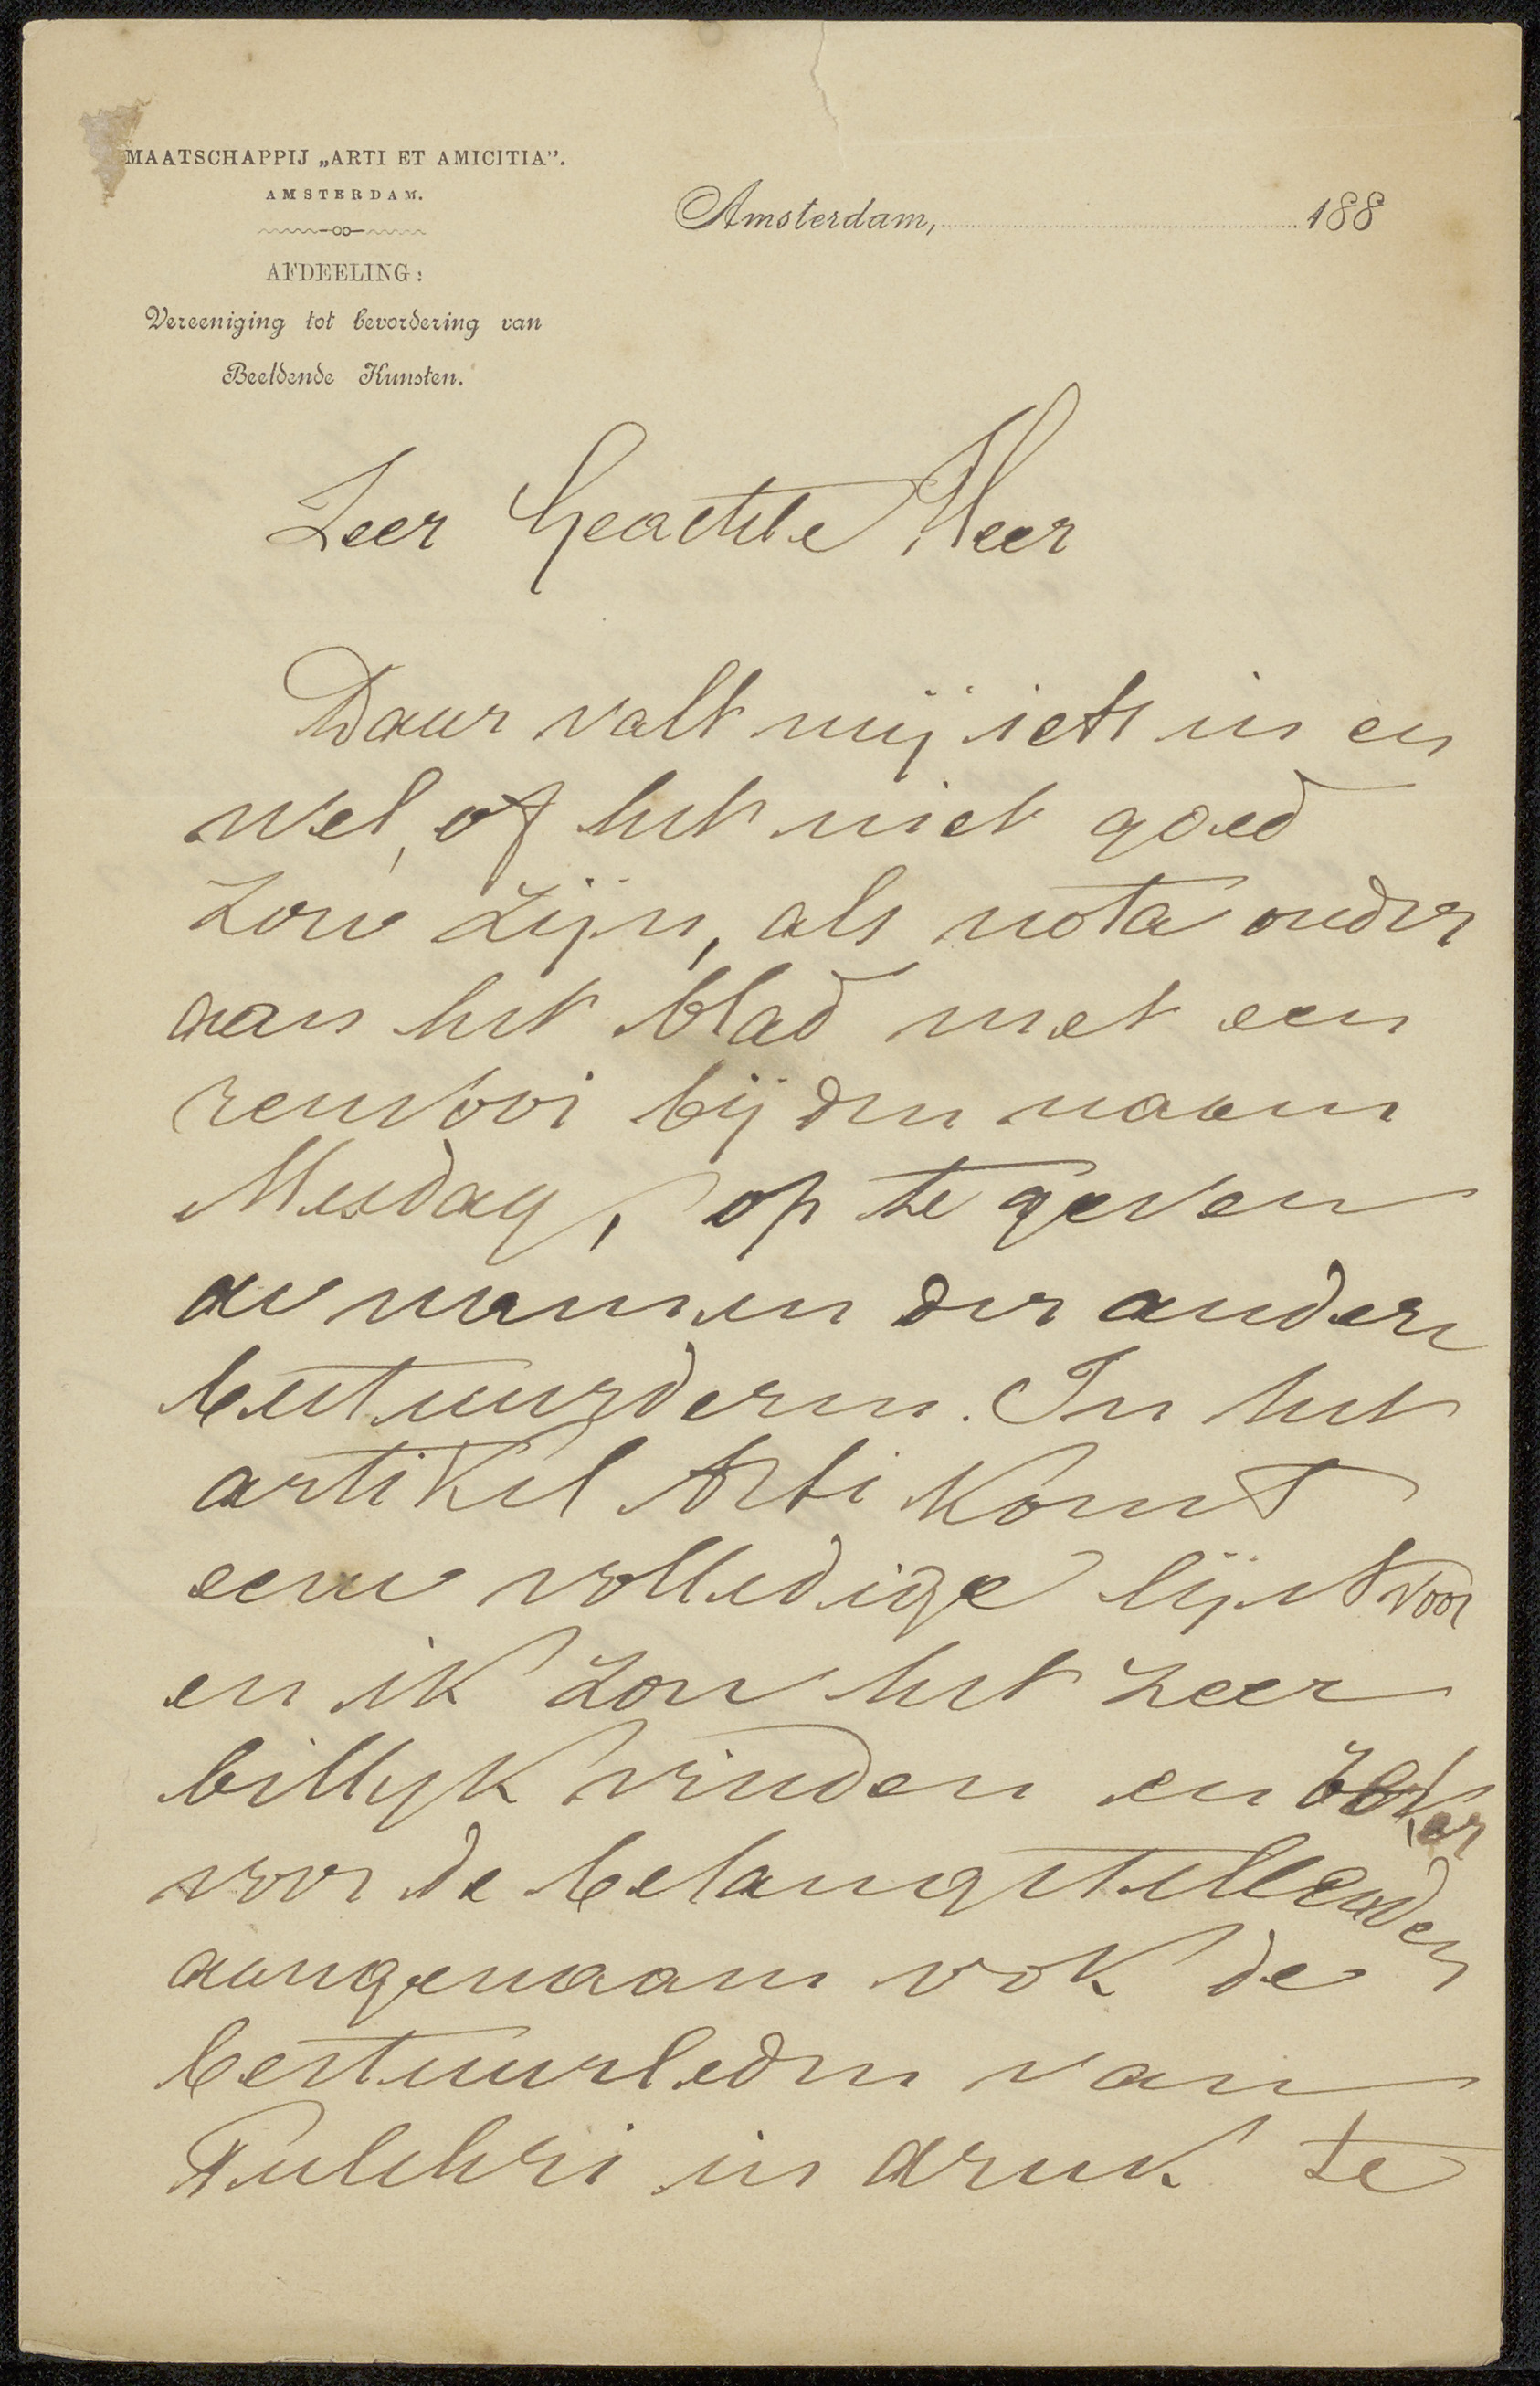 MAATSCHAPPIJ „ARTI ET AMICITIA”.
AMSTERDAM.
Amsterdam, 188
AFDEELING:
Vereeniging tot bevordering van
Beeldende Kunsten.
Zeer Geachte Heer
Daar valt mij iets in en
wel, of het niet goed
zou zijn, als nota onder
aan het blad met een
renvooi bij den naam
Mesdag, op te geven
de namen der andere
bestuurderen. In het
artikel Arti komt
eene volledige lijst voor
en ik zou het zeer
billijk vinden en zeker
voor de belangstellenden
aangenaam ook de
bestuursleden van
Pulchri in druk te